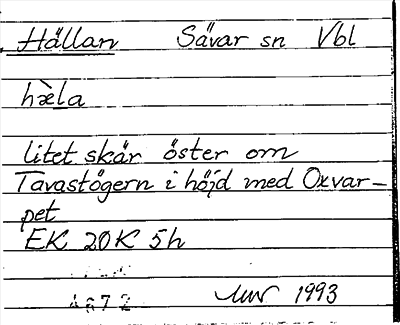 Hällan Sävar sn Vbl
hæ̀la
litet skär öster om
Tavastögern i höjd med Oxvar-
pet
EK 20K 5h
4672 1993